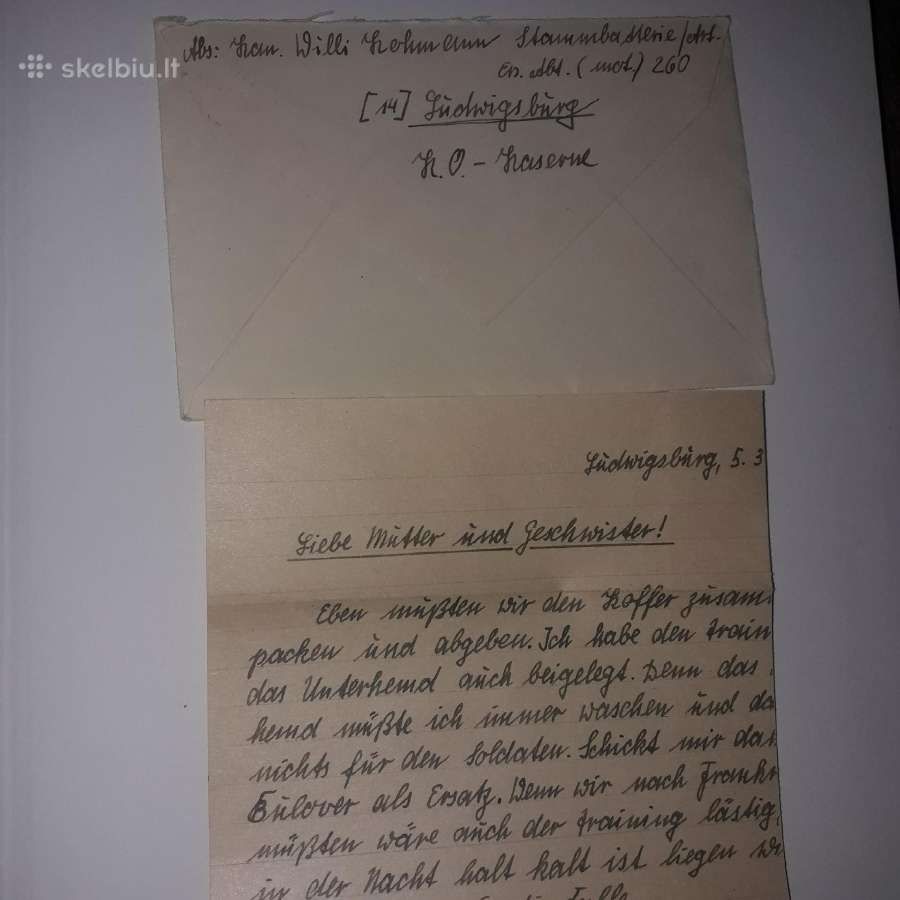 skelbiu.lt
Abs: Kan. Willi Lohmann Stammbatterie/Art.
Ers. Abt. (mot.) 260
[14] Ludwigsburg
K.O. - Kaserne
Ludwigsburg, 5. 3
Liebe Mutter und Geschwister!
Eben mußten wir den Koffer zusam
packen und abgeben. Ich habe den Train
das Unterhemd auch beigelegt. Denn das
hemd müßte ich immer waschen und da
nichts für den Soldaten. Schickt mir da
Pulover als Ersatz. Wenn wir nach Frankr
müßten wäre auch der Training lästig,
in der Nacht halt kalt ist liegen